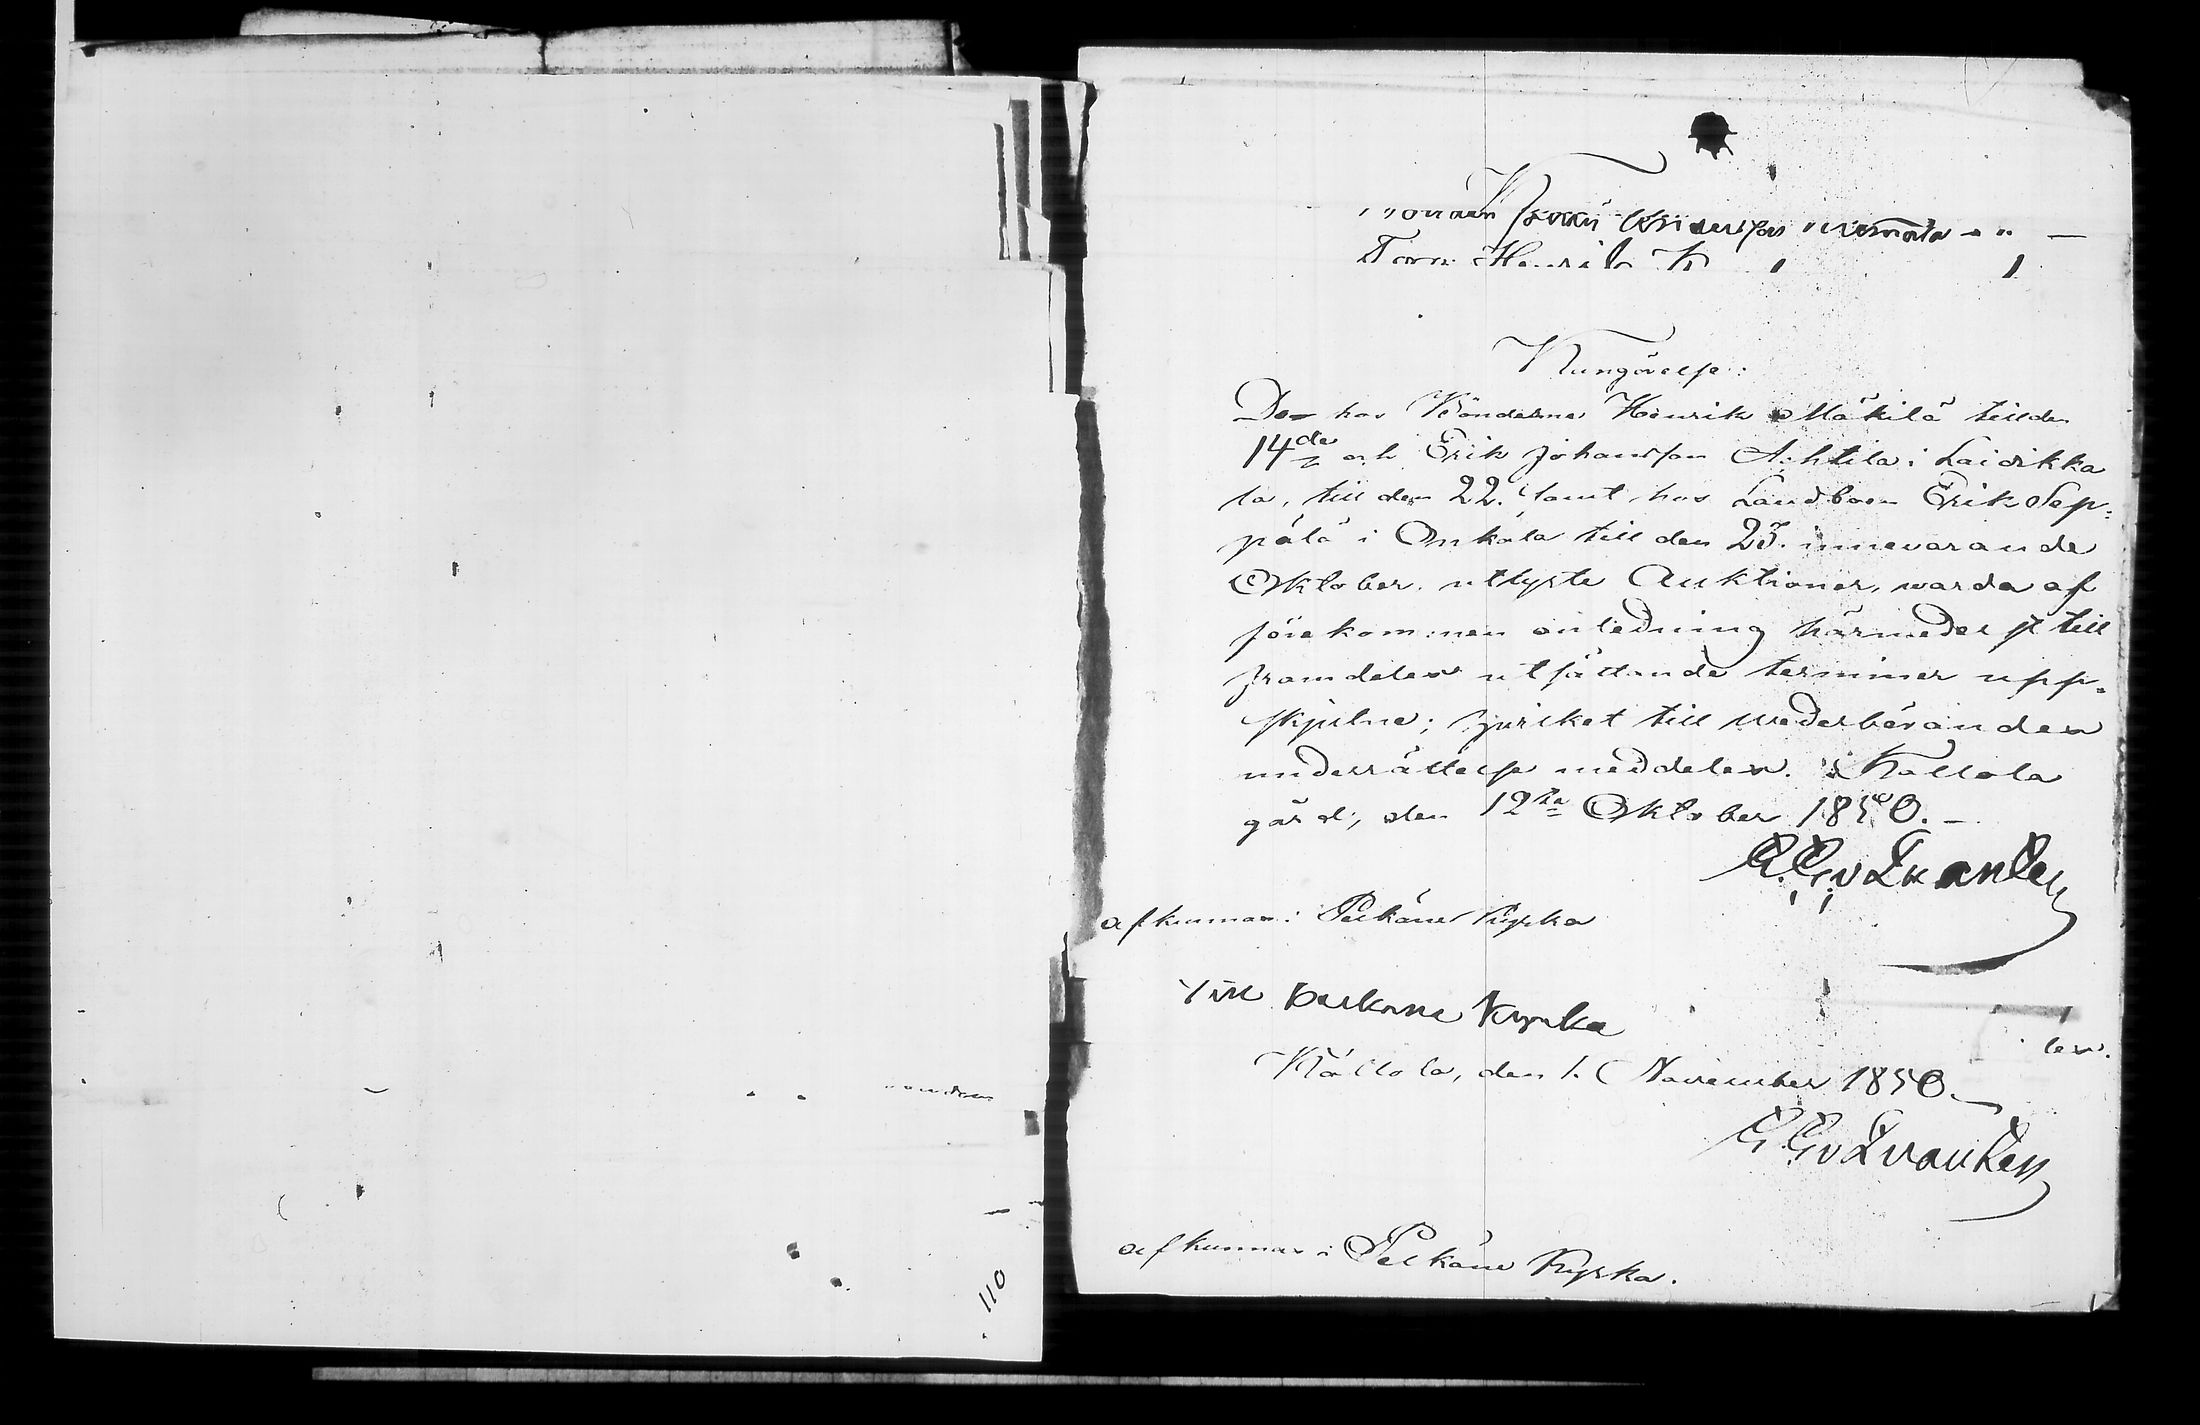 Henrik
Kungörelse:
De hos Bönderne Henrik Mäkilä till den
14de och Erik Johansson Ahtila i Laidikka
la, till den 22. samt hos Landboen Erik Sep-
pälä i Onkala till den 23. innevarande
Oktober utlyste Auktioner, warda af
förekommen anledning härmedelst till
framdeles utsättande terminer upp-
skjutne; hvilket till wederbörandes
underrättelse meddelas. Kallola
gård, den 12te Oktober 1850. –
G. G. v Qvanten
afkunnas i Pelkäne Kyrka
Till Pelkäne Kyrka
les.
Kallola, den 1. November 1850
G. G. v Qvanten
afkunnas i Pelkäne Kyrka.
110